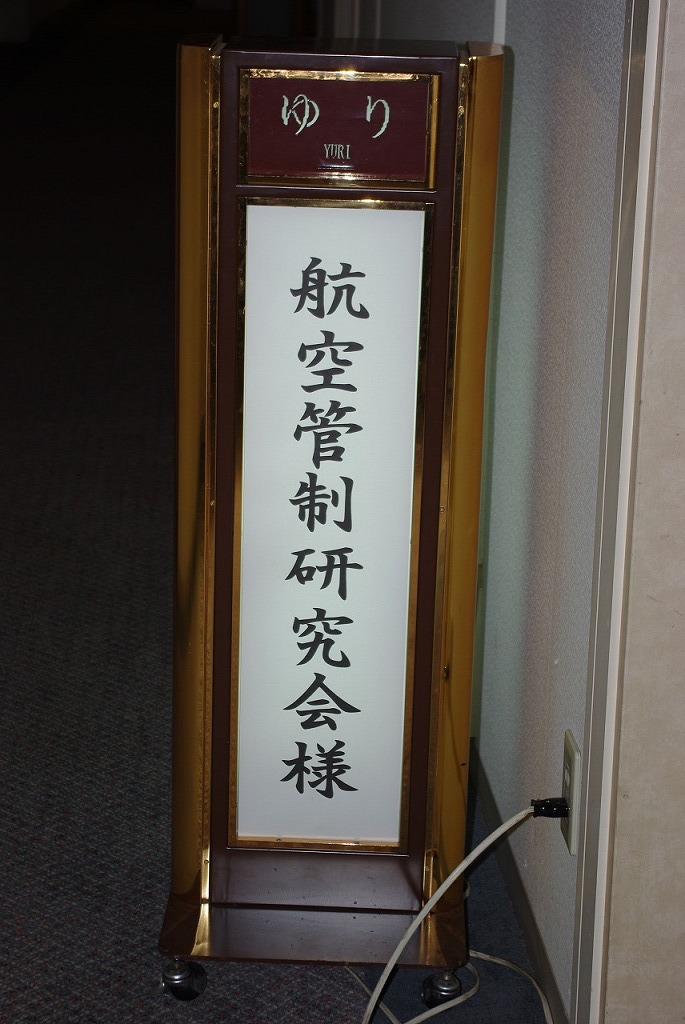 ゆり
YURI
航空管制研究会様